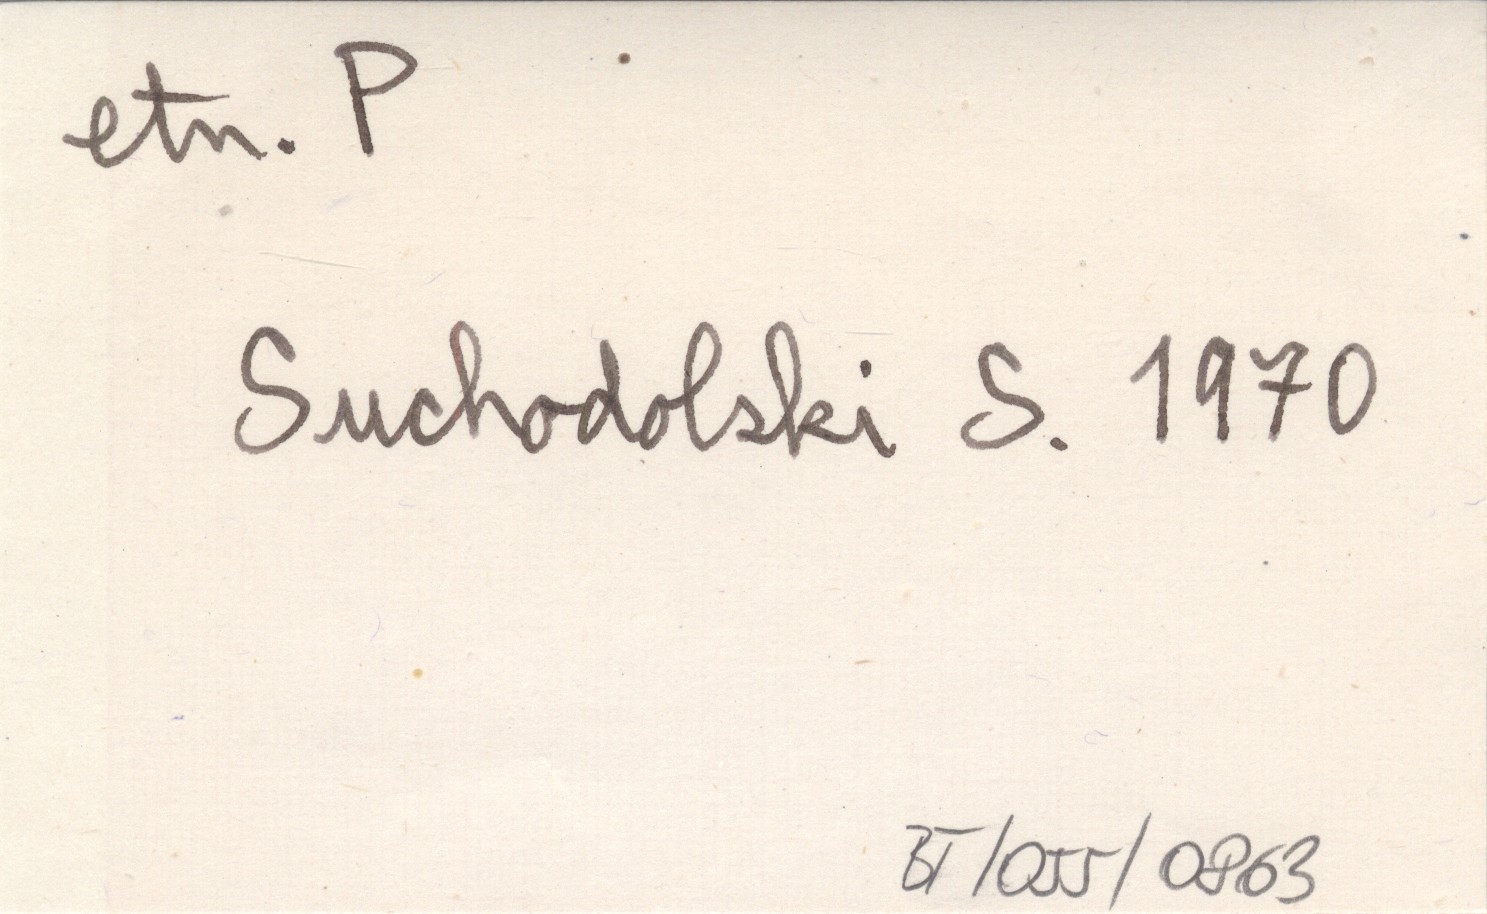 etn. P
Suchodolski S. 1970
BT/055/0863